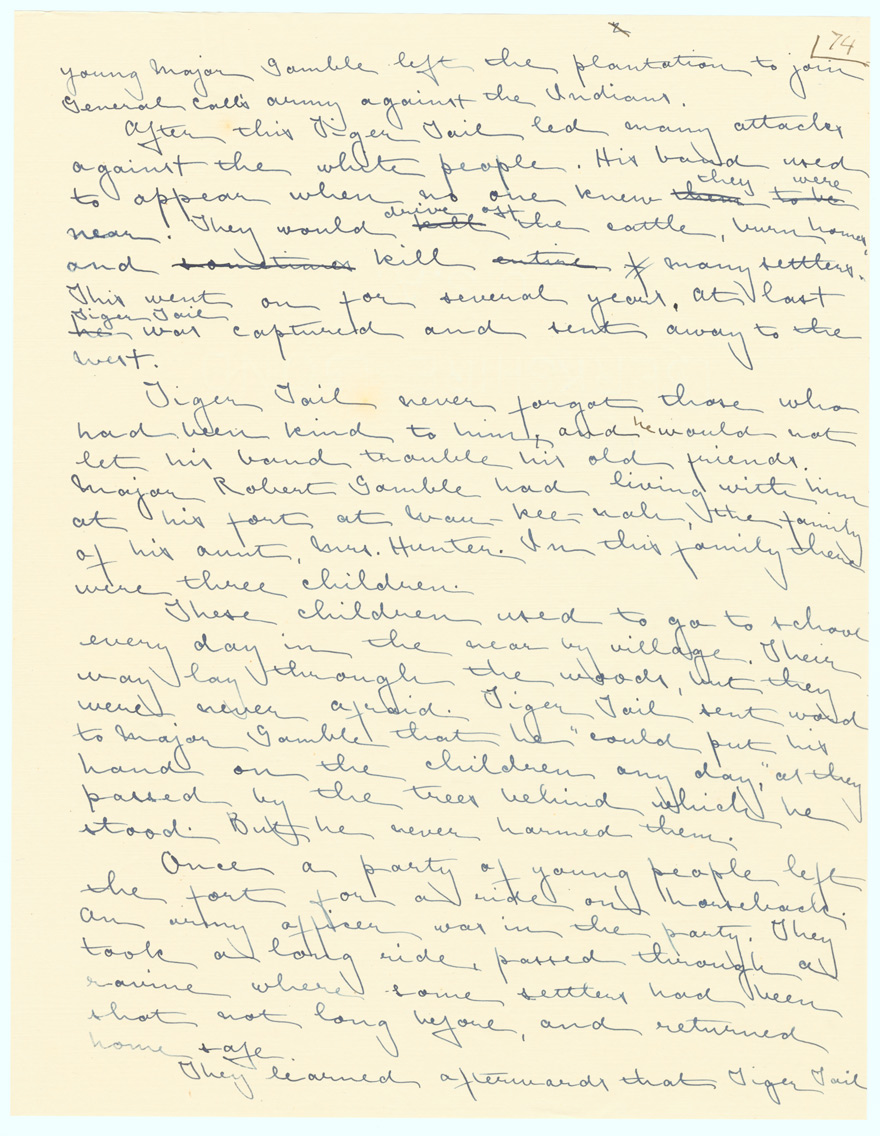 174
young Major Gamble left the plantation to join
General Call's army against the Indians.
After this Tiger Tail led many attacks
against the white people. His band used
to appear when no one knew them they to be were
near. They would kill drive off the cattle, burn homes,
and sometimes kill entire many settlers.
This went on for several years. At last
he Tiger Tail was captured and sent away to the
west.
Tiger Tail never forgot those who
had been kind to him, and he would not
let his band trouble his old friends.
Major Robert Gamble had living with him
at his fort at Wau-kee-nah, the family
of his aunt, Mrs. Hunter. In this family there
were three children.
These children used to go to school
every day in the near by village. Their
way lay through the woods, but they
were never afraid. Tiger Tail sent word
to Major Gamble that he "could put his
hand on the children any day," as they
passed by the trees behind which he
stood. But he never harmed them.
Once a party of young people left
the fort for a ride on horseback.
An army officer was in the party. They
took a long ride, passed through a
ravine where some settlers had been
shot not long before, and returned
home safe.
They learned afterwards that Tiger Tail